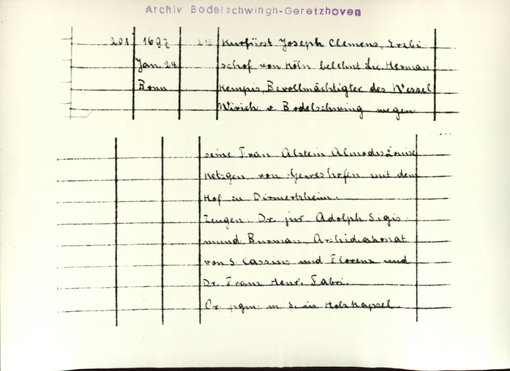 Archiv Bodelschwingh-Geretzhoven
201 1692 Kurfürst Joseph Clemens, Erzbi
Jan. 24 schof von Köln belehnt Lic. Herman
Bonn Kempis, Bevollmächtigter des Wessel
Wirich v. Bodelschwing wegen
seine Frau Alstein
Ketzgen von Geretshofen mit dem
Hof zu Dirmertzheim.
Zeugen: Dr. jur Adolph Sigis
mund Burman Archidiakonat
von S. Cassius und Florenz und
Dr. Franz Henr. Fabri.
Or. pgm. m. S. in Holzkapsel